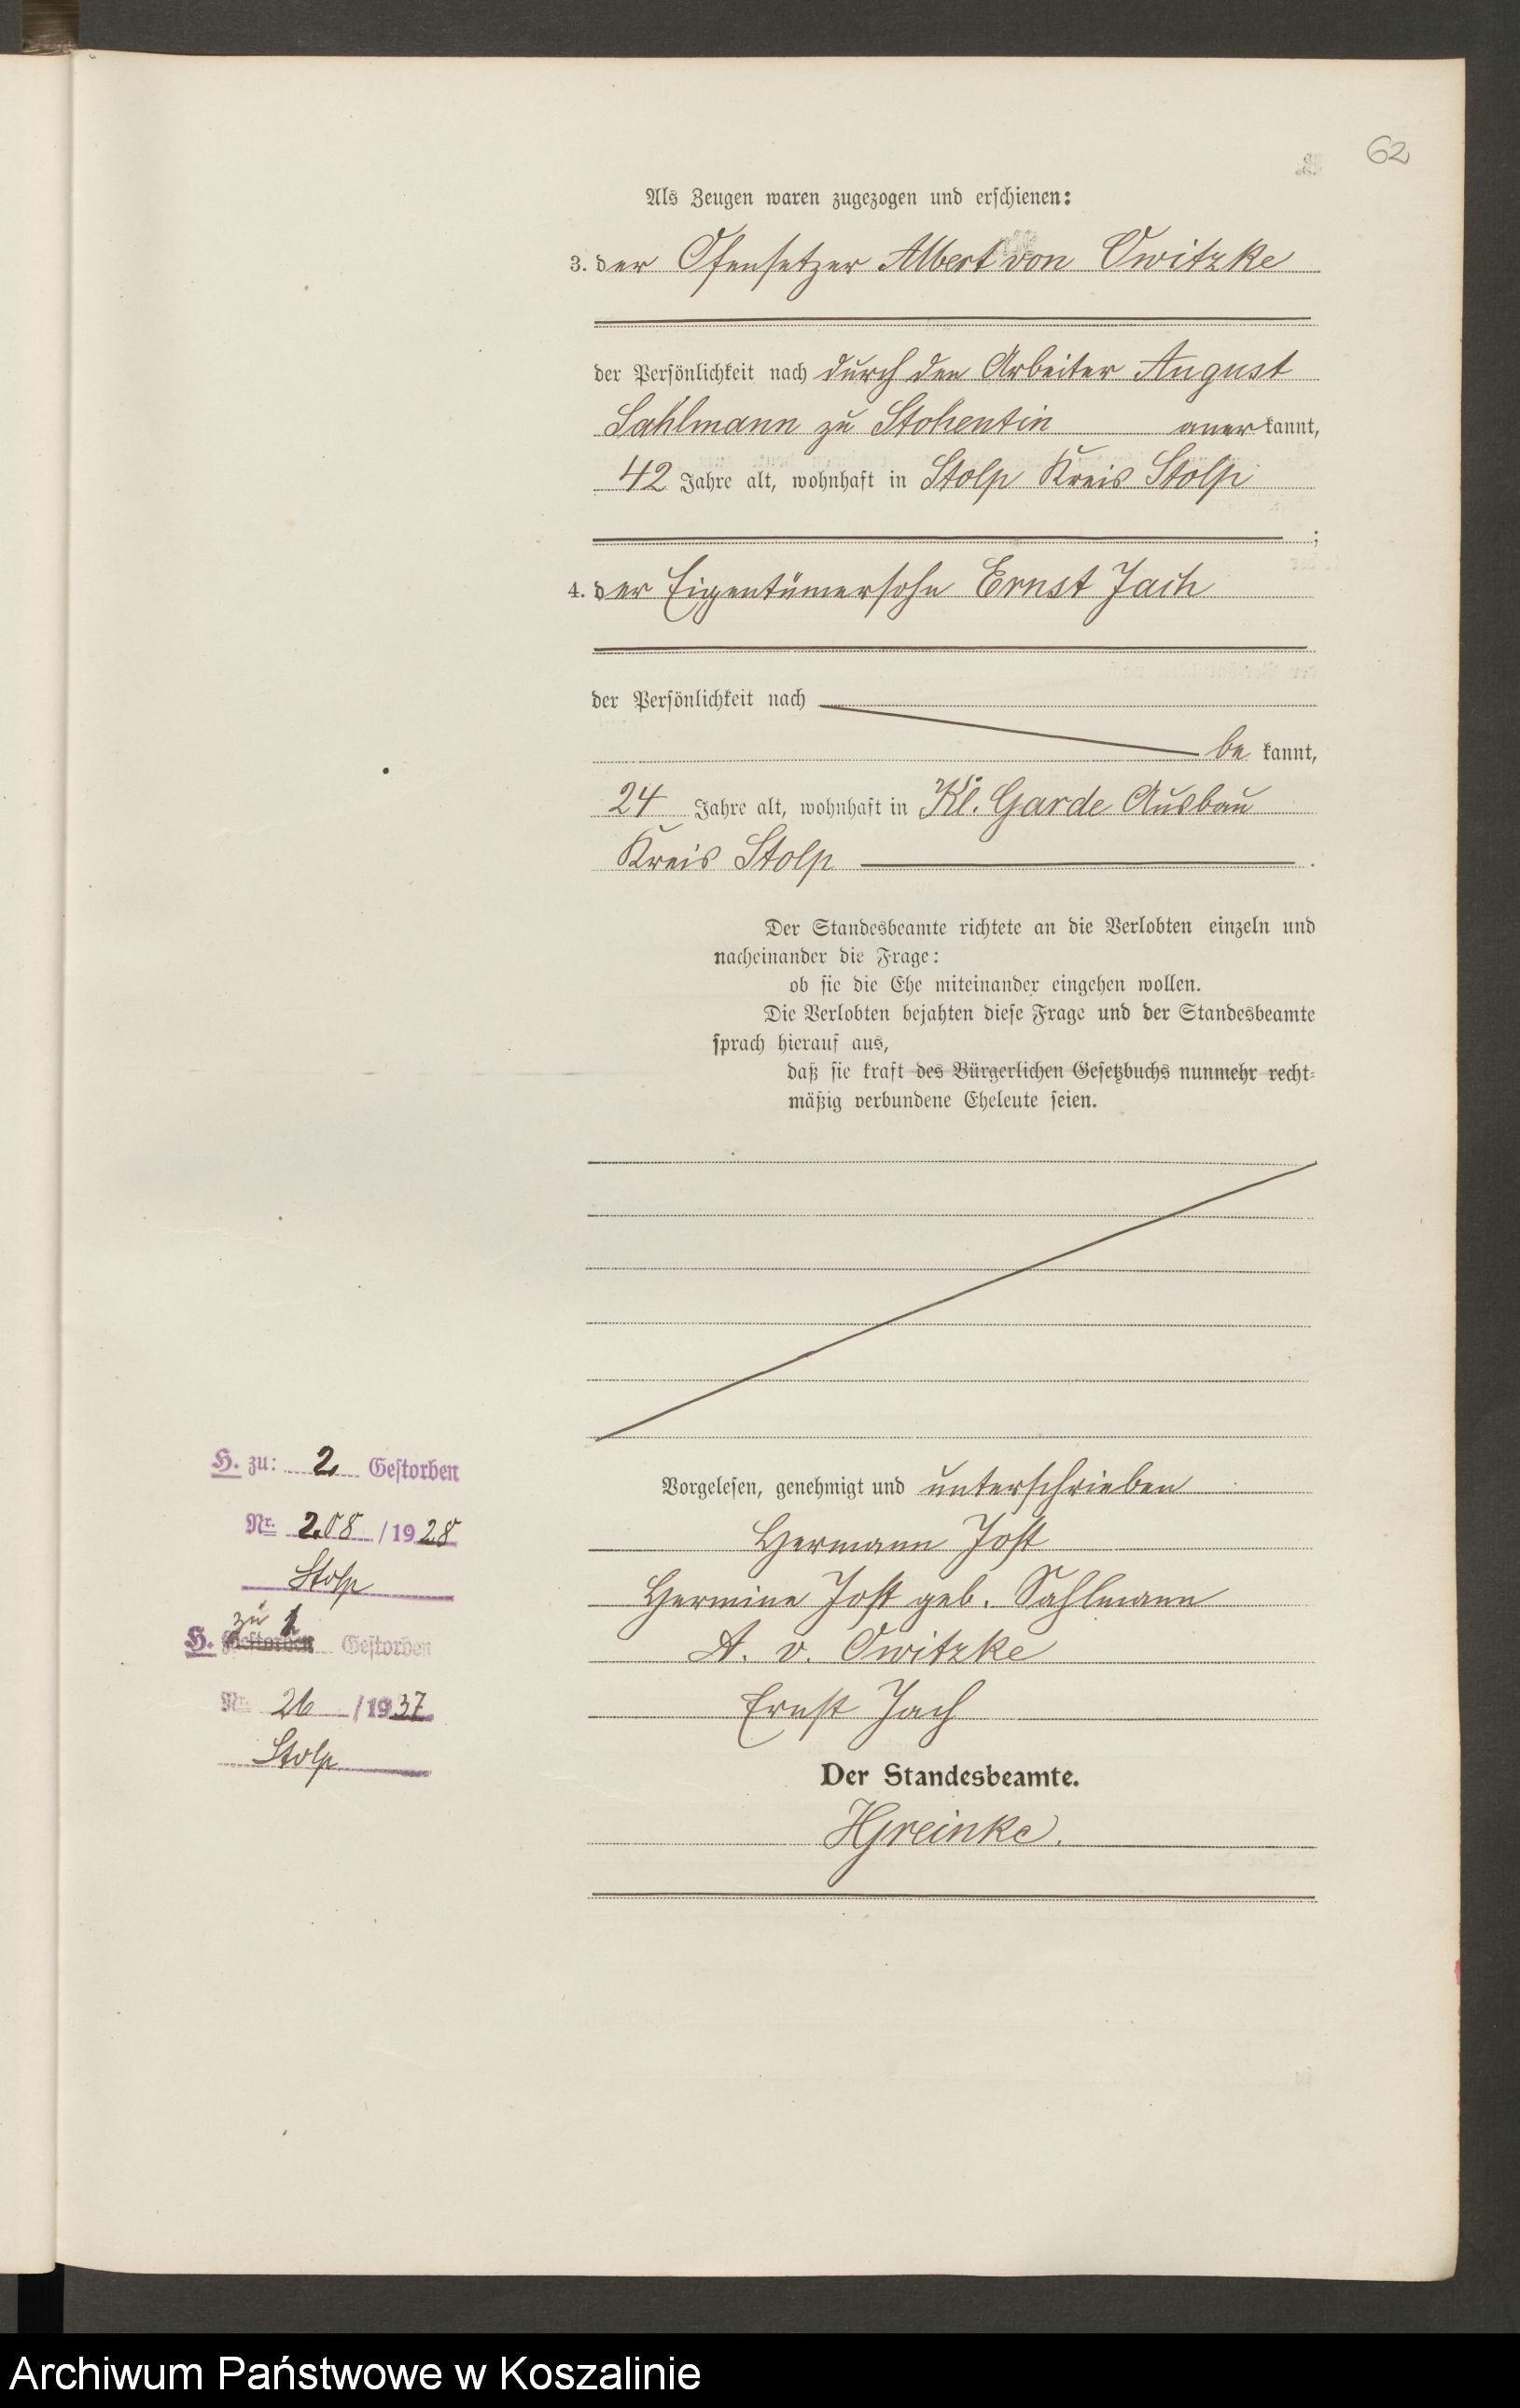 62
Als Zeugen waren zugezogen und erschienen:
3. der Ofensetzer Albert von Owitzke
der Persönlichkeit nach durch den Arbeiter August
Sahlmann zu Stohentin anerkannt,
42 Jahre alt, wohnhaft in Stolp Kreis Stolp
;
4. der Eigentümersohn Ernst Jach
der Persönlichkeit nach
be kannt,
24 Jahre alt, wohnhaft in Kl. Garde Ausbau
Kreis Stolp .
Der Standesbeamte richtete an die Verlobten einzeln und
nacheinander die Frage:
ob sie die Ehe miteinander eingehen wollen.
Die Verlobten bejahten diese Frage und der Standesbeamte
sprach hierauf aus,
daß sie kraft des Bürgerlichen Gesetzbuchs nunmehr recht-
mäßig verbundene Eheleute seien.
Vorgelesen, genehmigt und unterschrieben
Hermann Jost
Hermine Jost geb. Sahlmann
A. v. Owitzke
Ernst Jach
Der Standesbeamte.
HGreinke.
H. zu: 2 Gestorben
Nr. 208 / 1928
Stolp
zu 1
H. Gestorben Gestorben
Nr. 26 / 1937
Stolp
Archiwum Państwowe w Koszalinie